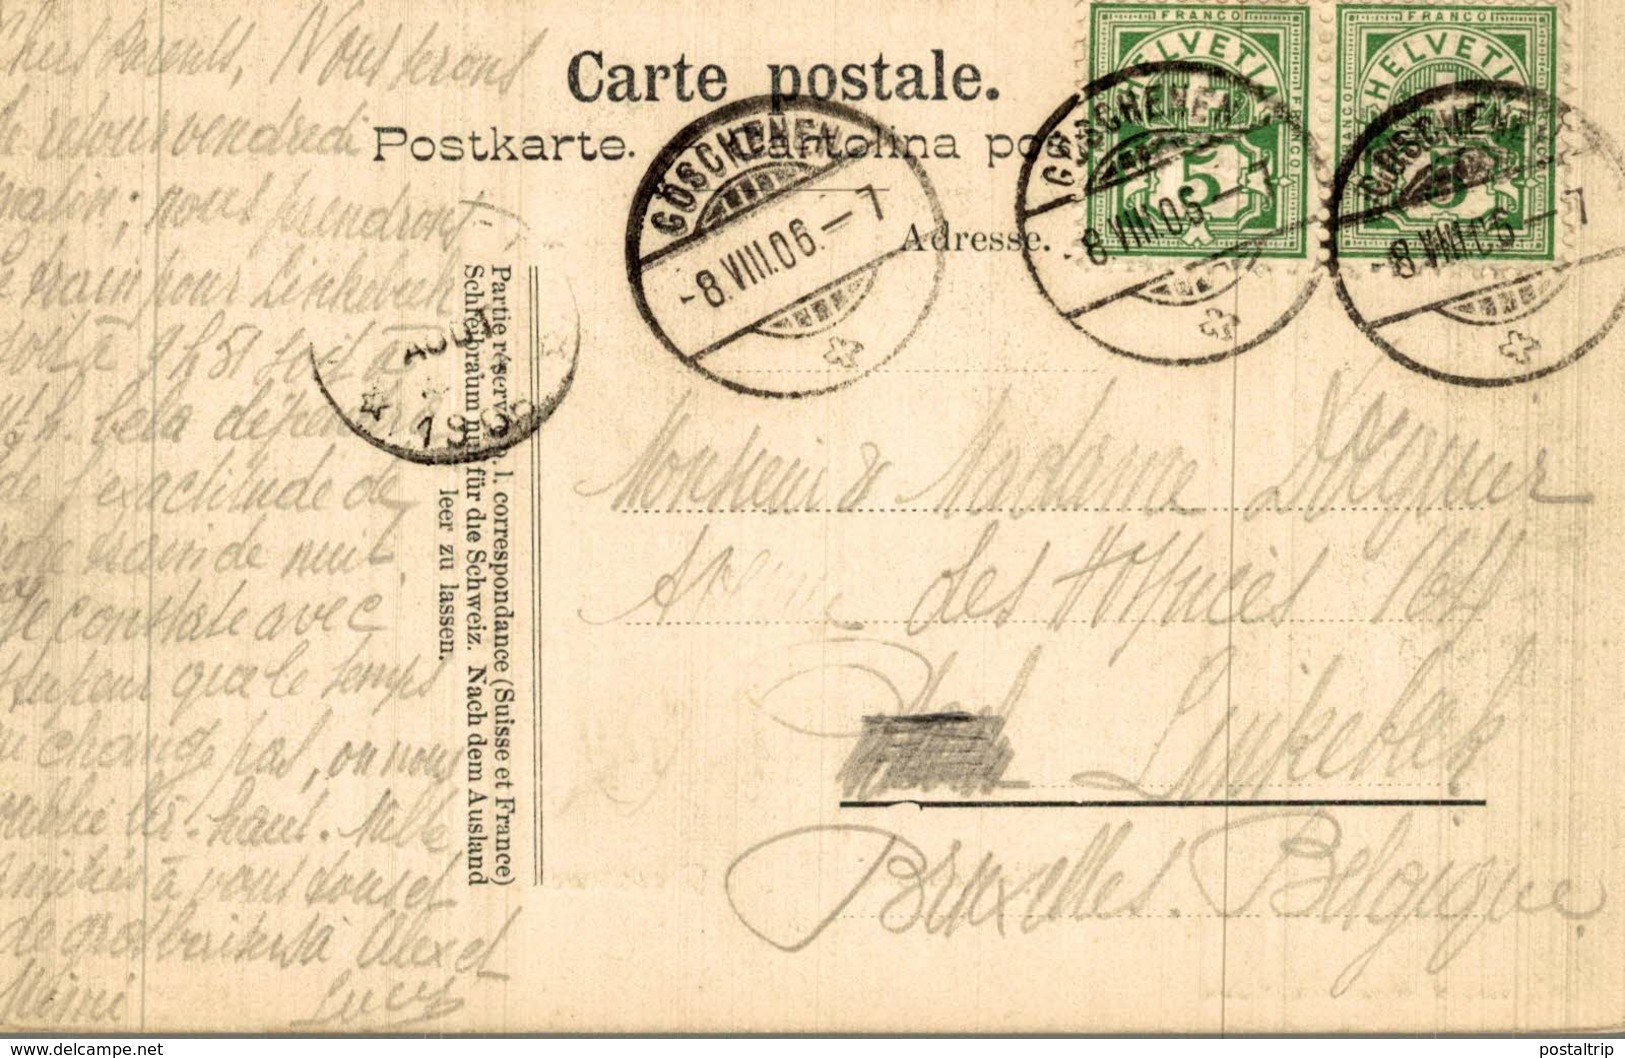 Carte postale.
Postkarte. Cartolina pos
FRANCO
HELVETIA
FRANCO
5
FRANCO
HELVETI
FRANCO
5
GÖSCHENEN
-8.VIII.06.-7
GÖSCHENEN
-8.VIII.06-7
GÖSCHENEN
-8.VIII.06-7
Adresse.
Chers parents, Nous serons
de retour vendredi
matin; nous prendrons
le train pour Linkebeek
soit à 9 h 51 soit à
h. Cela dépendra
de l'exactitude de
notre train de nuit.
Je constate avec
stupeur que le temps
ne change pas, on nous
oublie là-haut. Mille
amitiés à vous tous et
de gros baisers à Alex et
Mimi Lucy
AOUT
19
Partie réserv l. correspondance (Suisse et France)
Schreibraum nur für die Schweiz. Nach dem Ausland
leer zu lassen.
Monsieur & Madame
Avenue des 164
Linkebeek
Bruxelles. Belgique.
www.delcampe.net
postaltrip